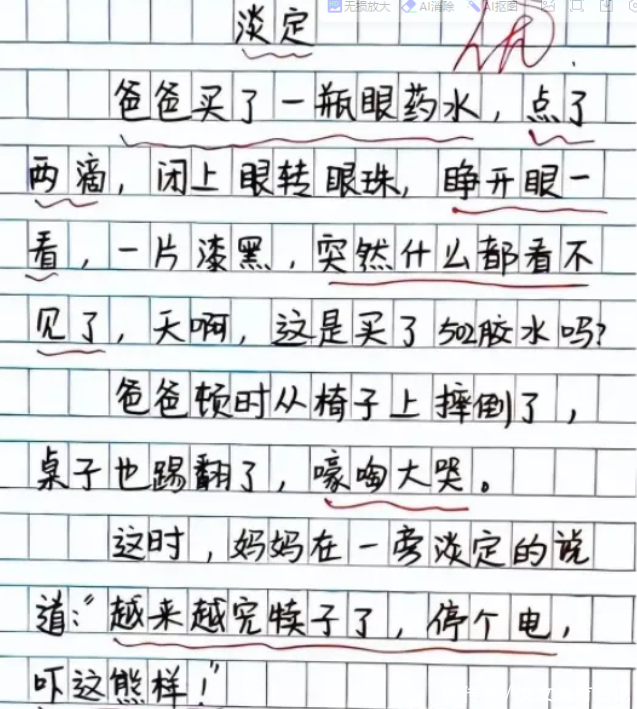 无损放大 AI消除 AI抠图
淡定
优
爸爸买了一瓶眼药水，点了
两滴，闭上眼转眼珠，睁开眼一
看，一片漆黑，突然什么都看不
见了，天啊，这是买了502胶水吗?
爸爸顿时从椅子上摔倒了，
桌子也踢翻了，嚎啕大哭。
这时，妈妈在一旁淡定的说
道:“越来越完犊子了，停个电，
吓这熊样！”